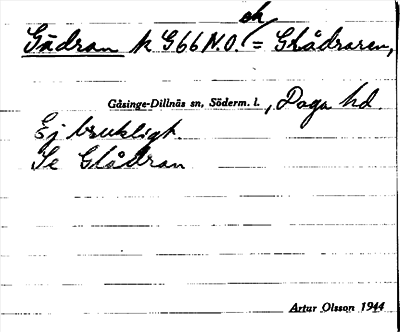 Gädran k G66 N.O. ek = Glådraren,
Gåsinge-Dillnäs sn, Söderm. l., Daga hd.
Ej brukligt.
Se Glådran
Artur Olsson 1944